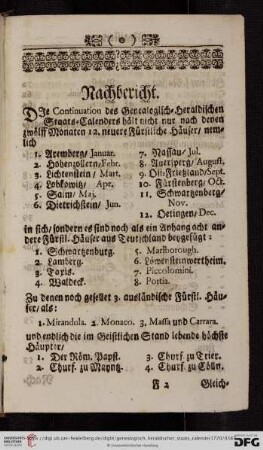 ( o )
Nachbericht.
Die Continuation des Genealogisch-Heraldischen
Staats-Calenders hält nicht nur nach denen
zwölff Monaten 12. neuere Fürstliche Häuser/ nem-
lich
1. Aremberg/ Januar.
2. Hohenzollern/ Febr.
3. Lichtenstein/ Mart.
4. Lobkowitz/ Apr.
5. Salm/ Maj.
6. Dietrichstein/ Jun.
7. Nassau/ Jul.
8. Auersperg/ August.
9. Ost-Frießland/ Sept.
10. Fürstenberg/ Oct.
11. Schwartzenberg/
Nov.
12. Oetingen/ Dec.
in sich/ sondern es sind noch als ein Anhang acht an-
dere Fürstl. Häuser aus Teutschland beygefügt:
1. Schwartzenburg.
2. Lamberg.
3. Taxis.
4. Waldeck.
5. Marlborough.
6. Löwensteinwertheim.
7. Piccolomini.
8. Portia.
Zu denen noch gesellet 3. ausländische Fürstl. Häu-
ser/ als:
1. Mirandula. 2. Monaco. 3. Massa und Carrara.
und endlich die im Geistlichen Stand lebende höchste
Häupter/
1. Der Röm. Papst.
2. Churf. zu Mayntz.
3. Churf. zu Trier.
4. Churf. zu Cölln.
F 2 Gleich-